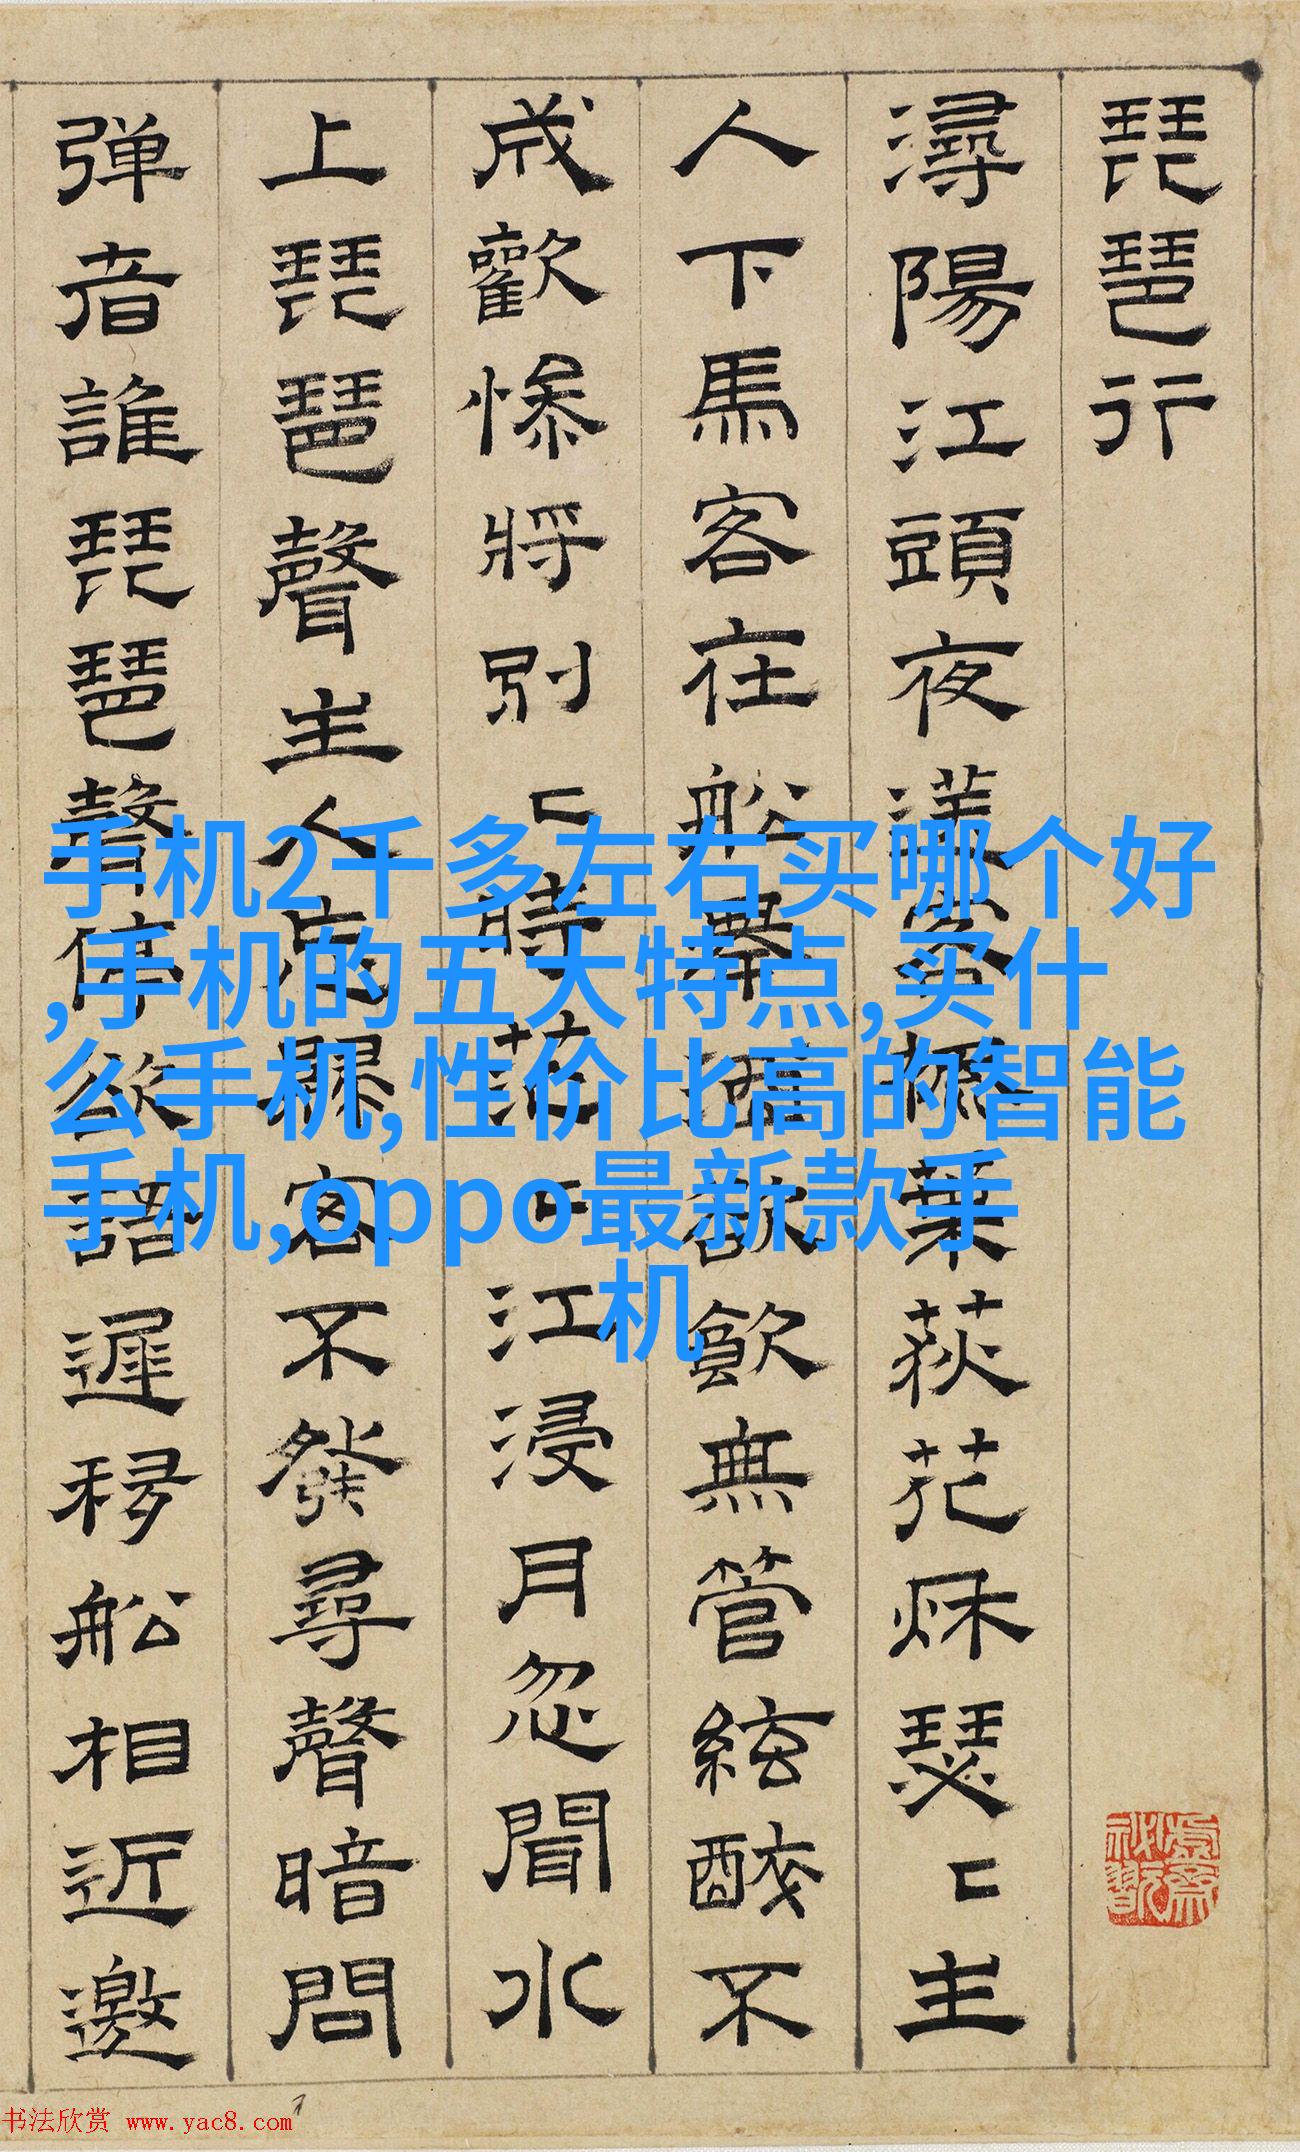 琵琶行
潯陽江頭夜送客楓葉荻花秌瑟〻主
人下馬客在船舉酒欲飲無管絃醉不
成歡慘將別〻時茫〻江浸月忽聞水
上琵琶聲主人忘歸客不發尋聲暗問
弹者誰琵琶聲停欲語遲移船相近邀
手机2千多左右买哪个好
,手机的五大特点,买什
么手机,性价比高的智能
手机,oppo最新款手
机
书法欣赏 www.yac8.com